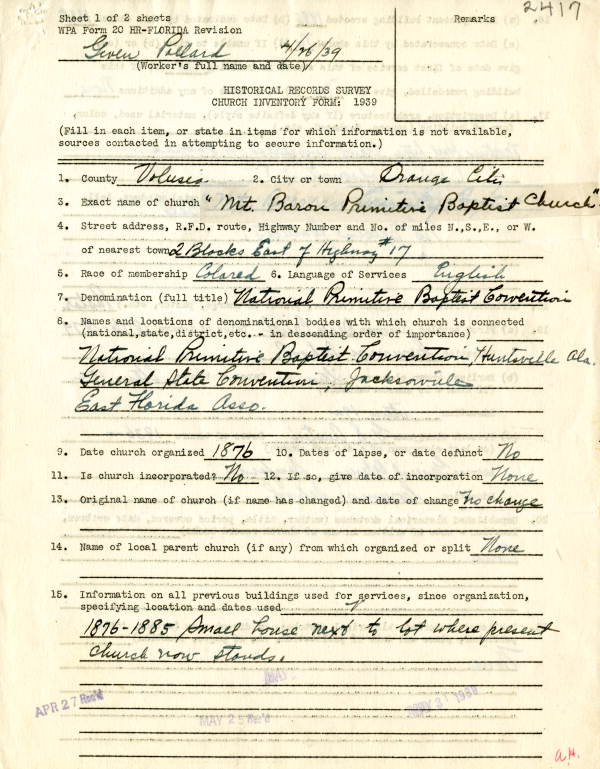 2417
Sheet 1 of 2 sheets
Remarks
WPA Form 20 HR-FLORIDA Revision
Given Pollard 4/26/39
(Worker's full name and date)
HISTORICAL RECORDS SURVEY
CHURCH INVENTORY FORM: 1939
(Fill in each item, or state in items for which information is not available,
sources contacted in attempting to secure information.)
1. County Volusia 2. City or town Orange City
3. Exact name of church "Mt. Baron Primitive Baptist Church"
4. Street address, R.F.D. route, Highway Number and No. of miles N.,S.,E., or W.
of nearest town 2 Blocks East of Highway #17
5. Race of membership Colored 6. Language of Services English
7. Denomination (full title) National Primitive Baptist Convention
8. Names and locations of denominational bodies with which church is connected
(national,state,district,etc. - in descending order of importance)
National Primitive Baptist Convention, Huntsville Ala.
General State Convention, Jacksonville
East Florida Asso.
9. Date church organized 1876 10. Dates of lapse, or date defunct No
11. Is church incorporated? No 12. If so, give date of incorporation None
13. Original name of church (if name has changed) and date of change no change
14. Name of local parent church (if any) from which organized or split None
15. Information on all previous buildings used for services, since organization,
specifying location and dates used
1876-1885 Small house next to lot where present
church now stands.
APR 27 Rec'd
MAY 25 Rec'd
MAY 31 1939
A.H.